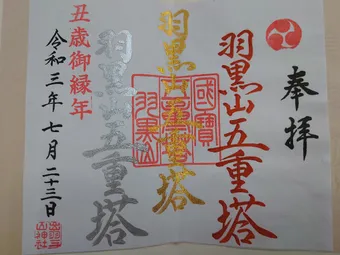 奉拝
羽黒山五重塔
羽黒山五重塔
國寶
羽黒山
羽黒山五重塔
丑歳御縁年
令和三年七月二十三日